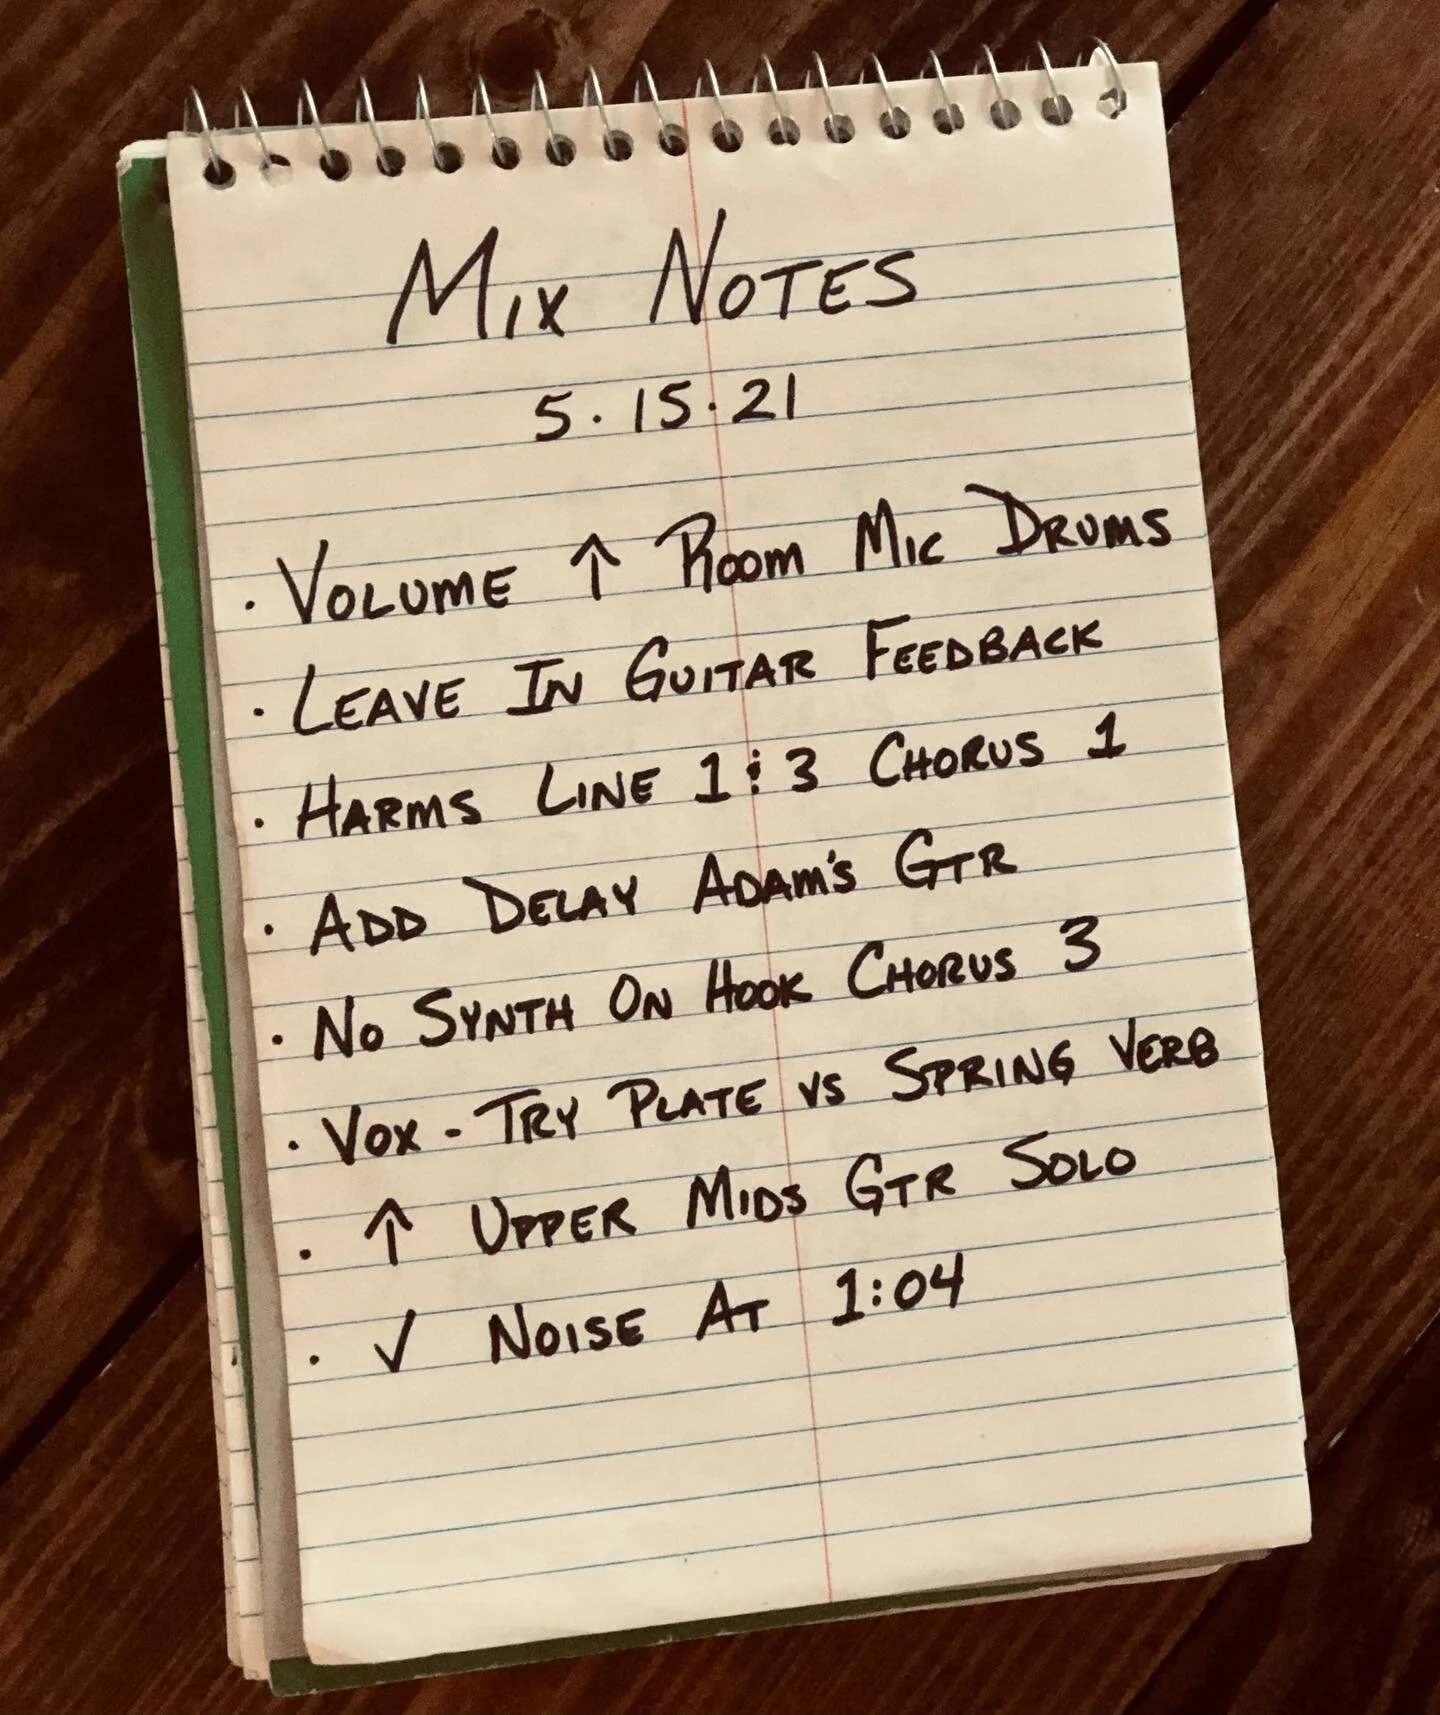 Mix Notes
5.15.21
· Volume ↑ Room Mic Drums
· Leave In Guitar Feedback
· Harms Line 1 & 3 Chorus 1
· Add Delay Adam's Gtr
· No Synth On Hook Chorus 3
· Vox - Try Plate vs Spring Verb
· ↑ Upper Mids Gtr Solo
· ✓ Noise At 1:04